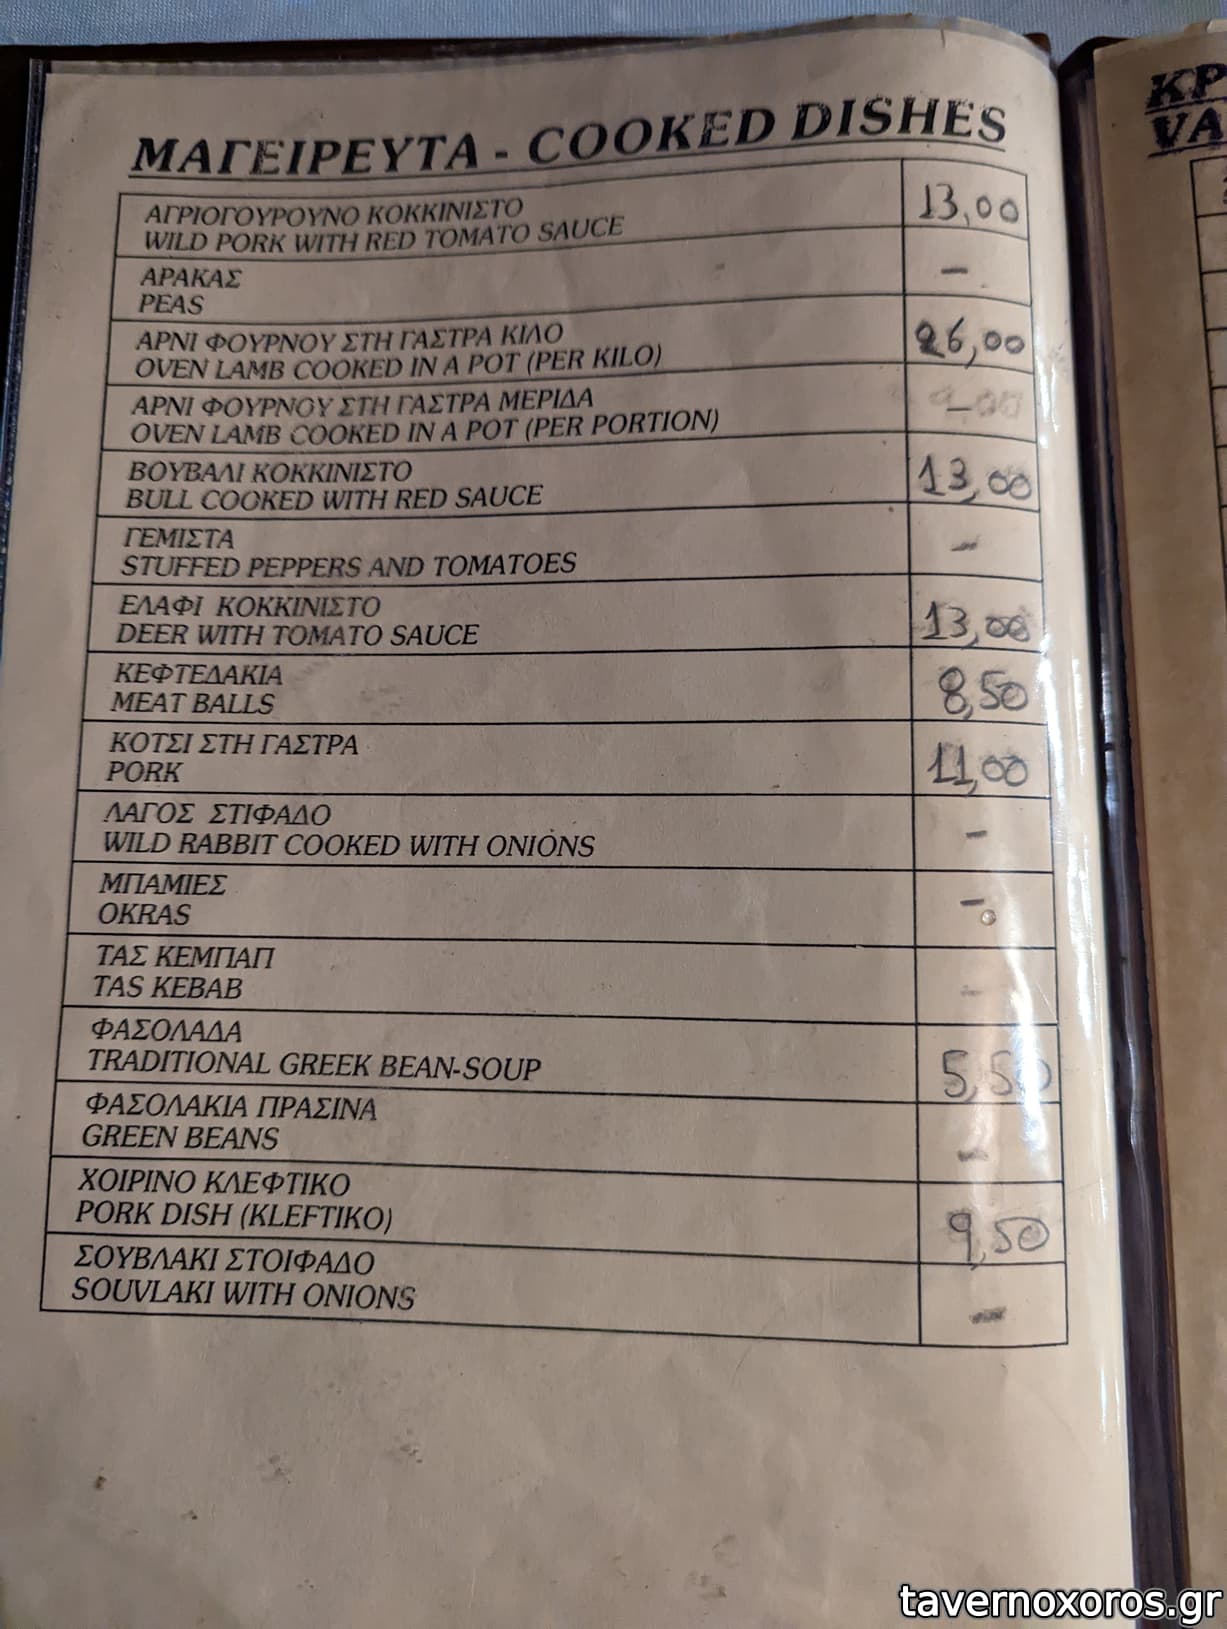 ΜΑΓΕΙΡΕΥΤΑ - COOKED DISHES
ΑΓΡΙΟΓΟΥΡΟΥΝΟ ΚΟΚΚΙΝΙΣΤΟ
WILD PORK WITH RED TOMATO SAUCE
13,00
ΑΡΑΚΑΣ
PEAS
-
ΑΡΝΙ ΦΟΥΡΝΟΥ ΣΤΗ ΓΑΣΤΡΑ ΚΙΛΟ
OVEN LAMB COOKED IN A POT (PER KILO)
26,00
ΑΡΝΙ ΦΟΥΡΝΟΥ ΣΤΗ ΓΑΣΤΡΑ ΜΕΡΙΔΑ
OVEN LAMB COOKED IN A POT (PER PORTION)
-
ΒΟΥΒΑΛΙ ΚΟΚΚΙΝΙΣΤΟ
BULL COOKED WITH RED SAUCE
13,00
ΓΕΜΙΣΤΑ
STUFFED PEPPERS AND TOMATOES
-
ΕΛΑΦΙ ΚΟΚΚΙΝΙΣΤΟ
DEER WITH TOMATO SAUCE
13,00
ΚΕΦΤΕΔΑΚΙΑ
MEAT BALLS
8,50
ΚΟΤΣΙ ΣΤΗ ΓΑΣΤΡΑ
PORK
11,00
ΛΑΓΟΣ ΣΤΙΦΑΔΟ
WILD RABBIT COOKED WITH ONIONS
-
ΜΠΑΜΙΕΣ
OKRAS
-
ΤΑΣ ΚΕΜΠΑΠ
TAS KEBAB
-
ΦΑΣΟΛΑΔΑ
TRADITIONAL GREEK BEAN-SOUP
5,50
ΦΑΣΟΛΑΚΙΑ ΠΡΑΣΙΝΑ
GREEN BEANS
-
ΧΟΙΡΙΝΟ ΚΛΕΦΤΙΚΟ
PORK DISH (KLEFTIKO)
9,50
ΣΟΥΒΛΑΚΙ ΣΤΟΙΦΑΔΟ
SOUVLAKI WITH ONIONS
-
ΚΡ
VA
tavernoxoros.gr